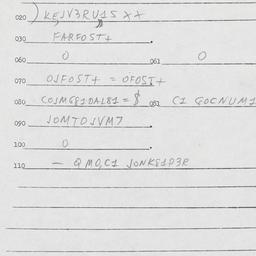 020 ) KEJV3RU15 XX
030 FARFOST+ .
060 0 061 0
070 OJFOST+ = OFOST+
080 COJMG81DAL81 = $ 081 C1 GOCNUM1
090 JOMTOJVM7 .
100 0 .
110 — QMO,C1 JONK81P3R